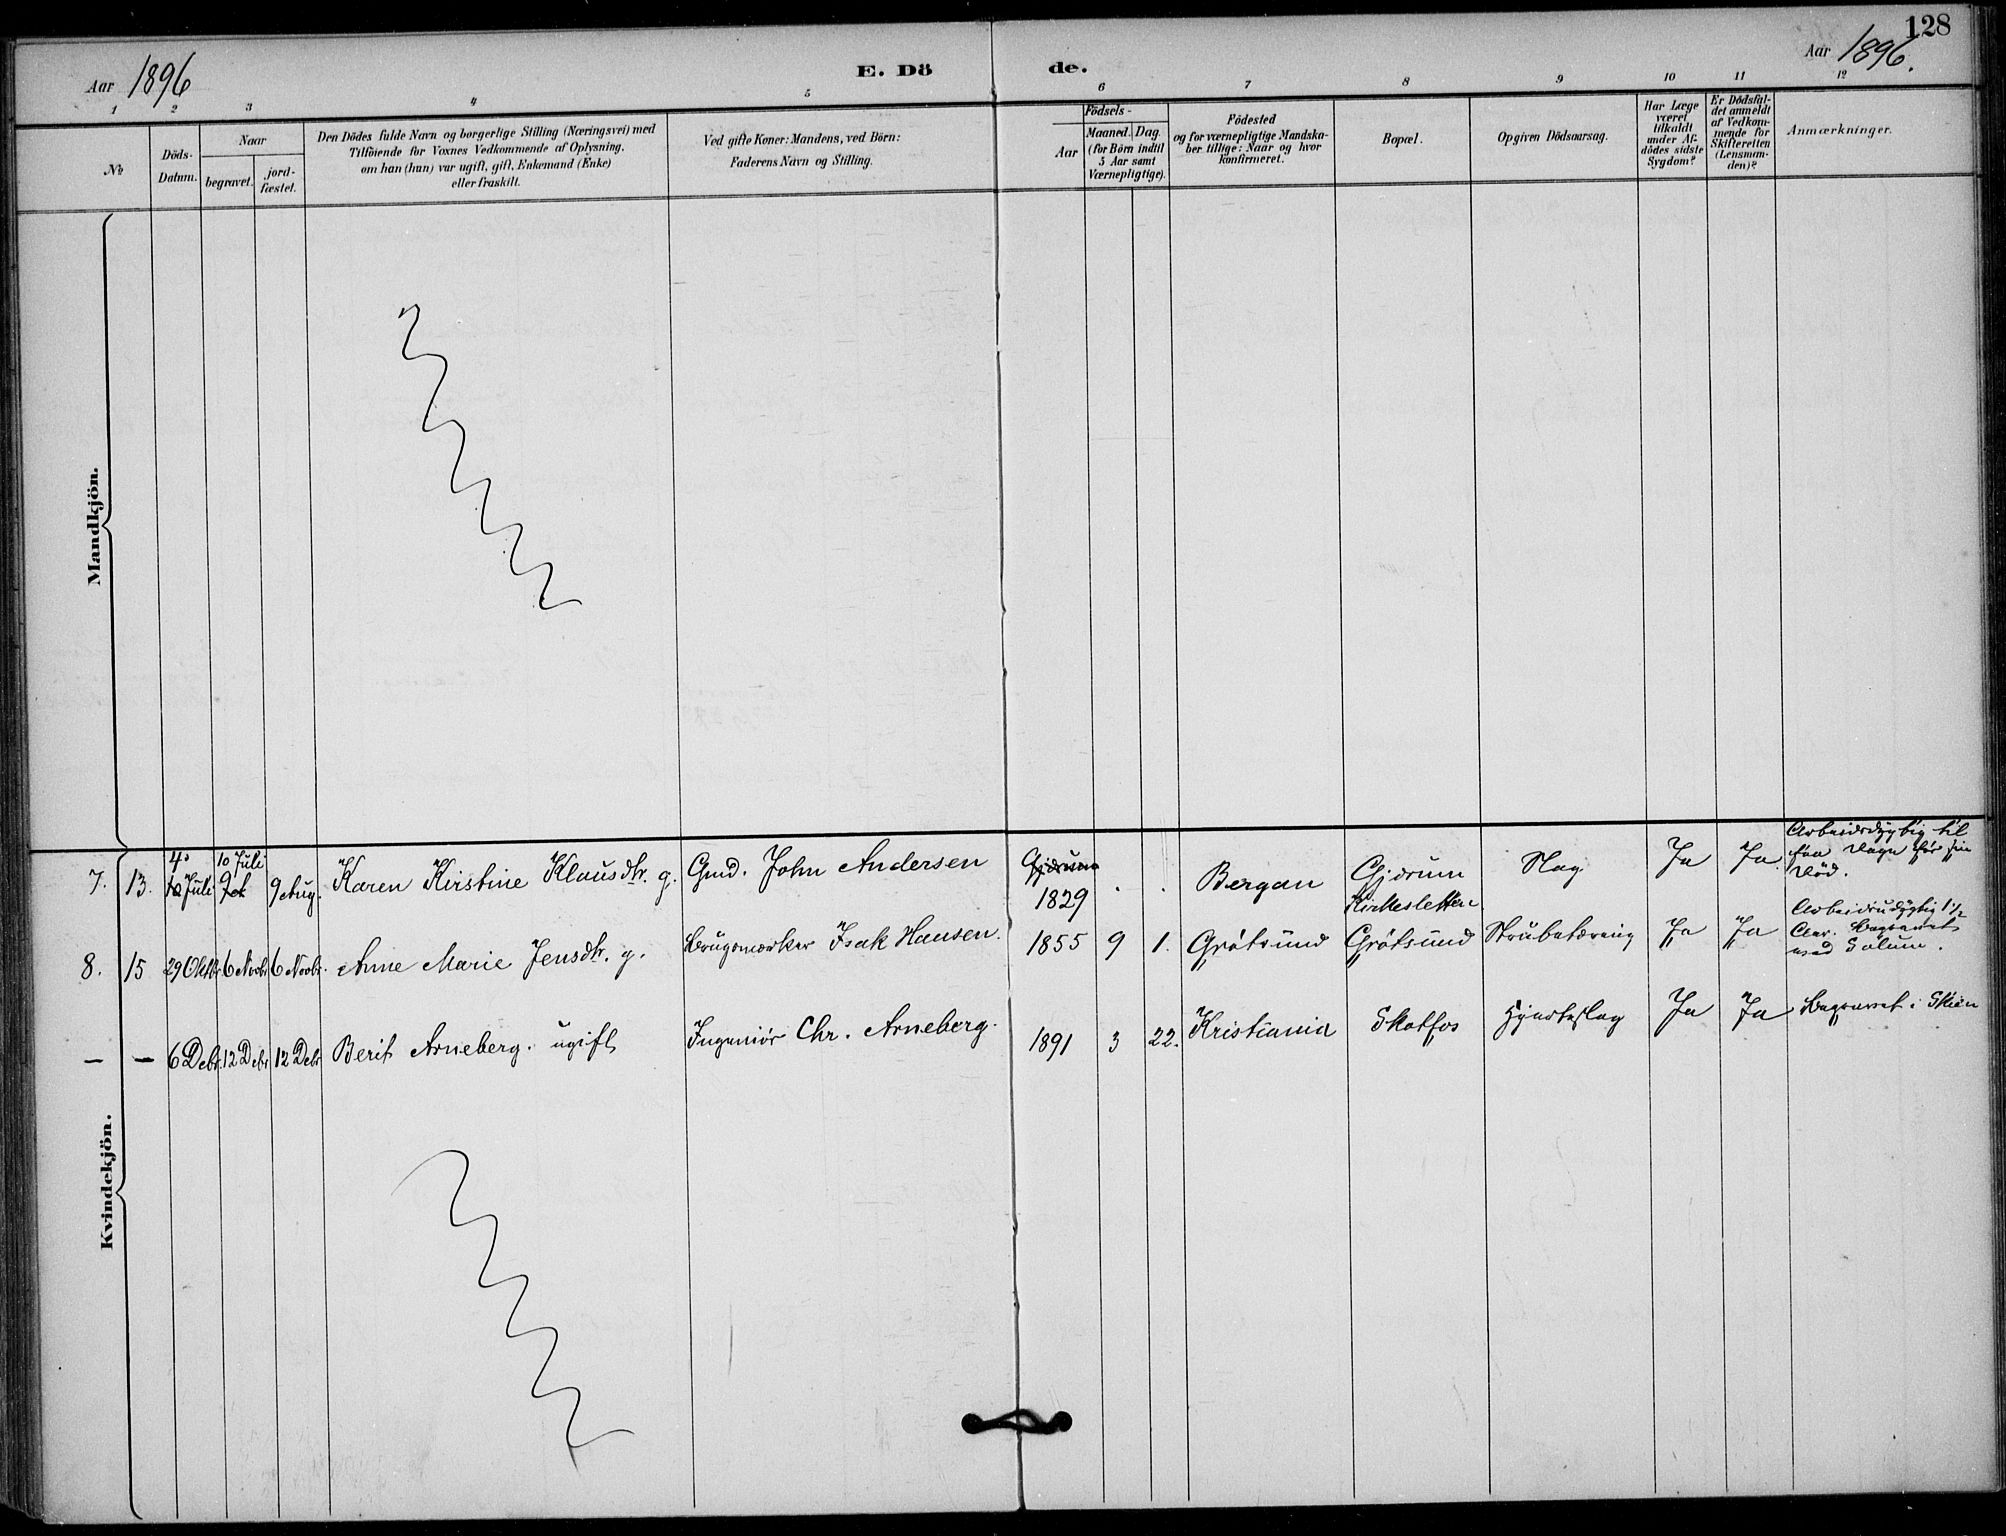 128
Aar 1896
E. Dö
de.
Aar 1896.
1 2 3 4 5 6 7 8 9 10 11 12
No
Döds-Datum.
Naar
begravet.
jord-fæstet.
Den Dödes fulde Navn og borgerlige Stilling (Næringsvei) med
Tilföiende for Voxnes Vedkommende af Oplysning,
om han (hun) var ugift, gift, Enkemand (Enke)
eller fraskilt.
Ved gifte Koner: Mandens, ved Börn:
Faderens Navn og Stilling.
Födsels-
Aar
Maaned. Dag.
(for Børn indtil
5 Aar samt
Værnepligtige).
Födested
og for værnepligtige Mandska-
ber tillige: Naar og hvor
konfirmeret.
Bopæl.
Opgiven Dödsaarsag.
Har Læge
været
tilkaldt
under Af-
dödes sidste
Sygdom?
Er Dödsfal-
det anmeldt
af Vedkom-
mende for
Skifteretten
(Lensman-
den)?
Anmærkninger.
Mandkjön.
7. 13. 4 Juli 10 Juli 9 Aug. Karen Kirstine Klausdtr. g. Gmd. John Andersen Gjerum 1829 . . Bergan Gjerum Kirkesletten Slag Ja Ja Arbeidsdygtig til
faa Dage før sin
Død.
8. 15 29 Oktbr 6 Novbr 6 Novbr. Anne Marie Jensdtr. g. Brugsmærker Isak Hansen. 1855 9 1. Grøtsund Grøtsund Strubetæring Ja Ja Arbeidsudygtig 1 1/2
Aar. Begravet
ved Solum.
— — 6 Debr. 12 Debr 12 Debr Berit Arneberg. ugift Ingeniør Chr. Arneberg. 1891 3 22. Kristiania Skotfos Hjerteslag Ja Ja Begravet i Skien
Kvindekjön.